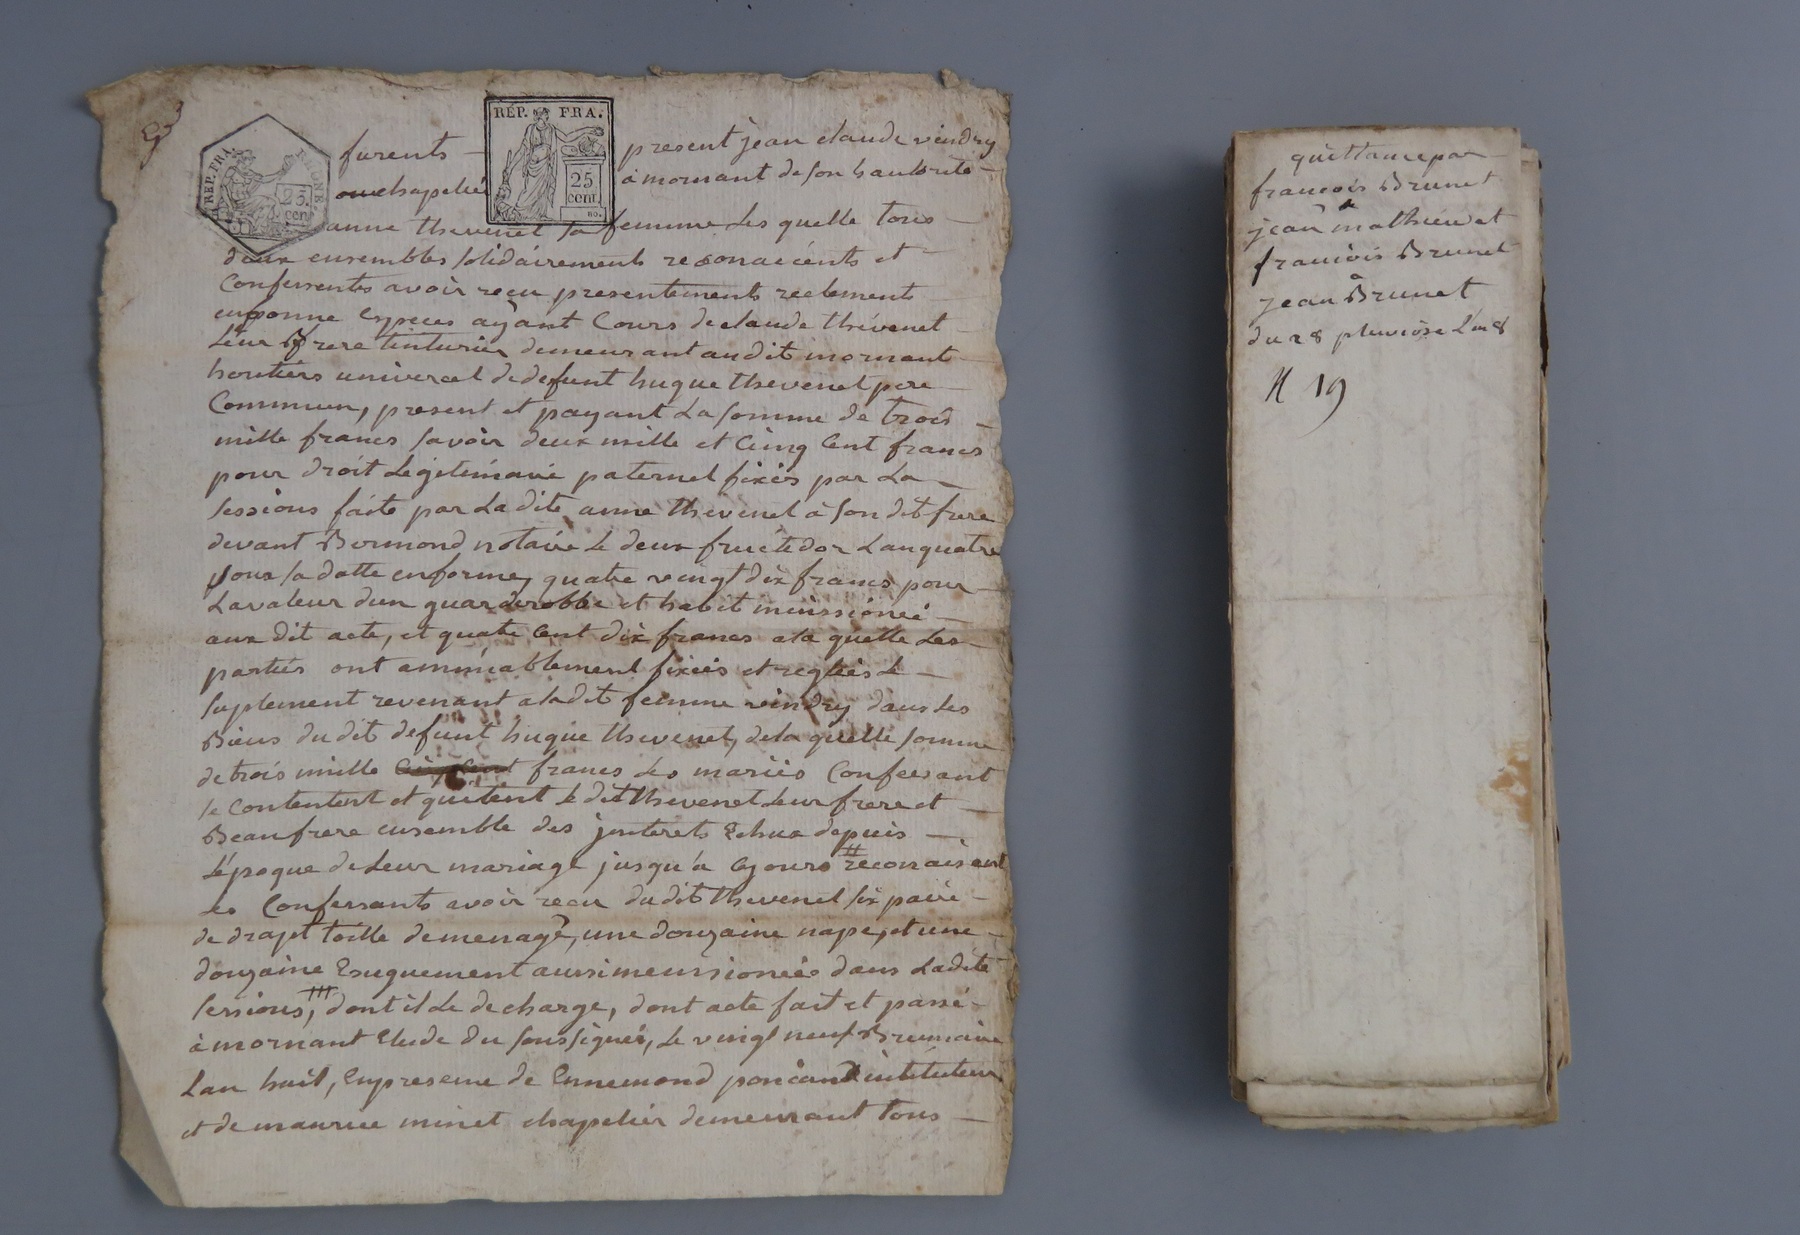 REP. FRA. RHONE.
25 cent
REP. FRA.
25 cent
furents present jean claude vindry
chapelié à mornant de son hautorité
anne thevenet sa femme Les quelle tous
deux ensembles solidairements reconaicents et
Confessents avoir recu presentements reelements
en bonne Especes ayant Cours de claude thevenet
Leur frere tinturier demeurant audit mornant
heritiers univercel de defunt huque thevenet pere
Commun, present et payant La somme de trois
mille francs savoir deux mille et Cinq Cent francs
pour droit Legitimaire paternel fixés par La
sessions faite par La dite anne thevenet à son dit frere
devant Bermond notaire Le deux fructidor Lan quatre
sous sa datte en forme, quatre vingt dix francs pour
La valeur dun guarderobbe et habit minssionée
aux dit acte, et quatre Cent dix francs a la quelle Les
parties ont ammiablement fixées et reglées Le
suplement revenant a ladit femme vindry dans Les
Biens du dit defunt huque thevenet, de la quelle somme
de trois mille francs Les mariés Confessant
se Contentent et quitent le dit thevenet Leur frere et
Beaufrere ensemble des jnterets Echux depuis
L'époque de Leur mariage jusqu'à Cejours reconaisant
Confessants avoir recu du dit thevenet six paire
de drapt toille demenage, une douzaine nape, et une
douzaine Esuquement aussi menssionées dans Ladite
sessions, dont il Le decharge, dont acte fait et passé
à mornant Etude du soussigné, Le vingt neuf Brumaire
Lan huit, En presence de Ennemond poncand intituteur
et de maurice minet chapelier demeurant tous
quittance par
francois Brunet
jean mathieu et
francois Brunet
à
jean Brunet
du 28 pluviose L'an 8
N 19